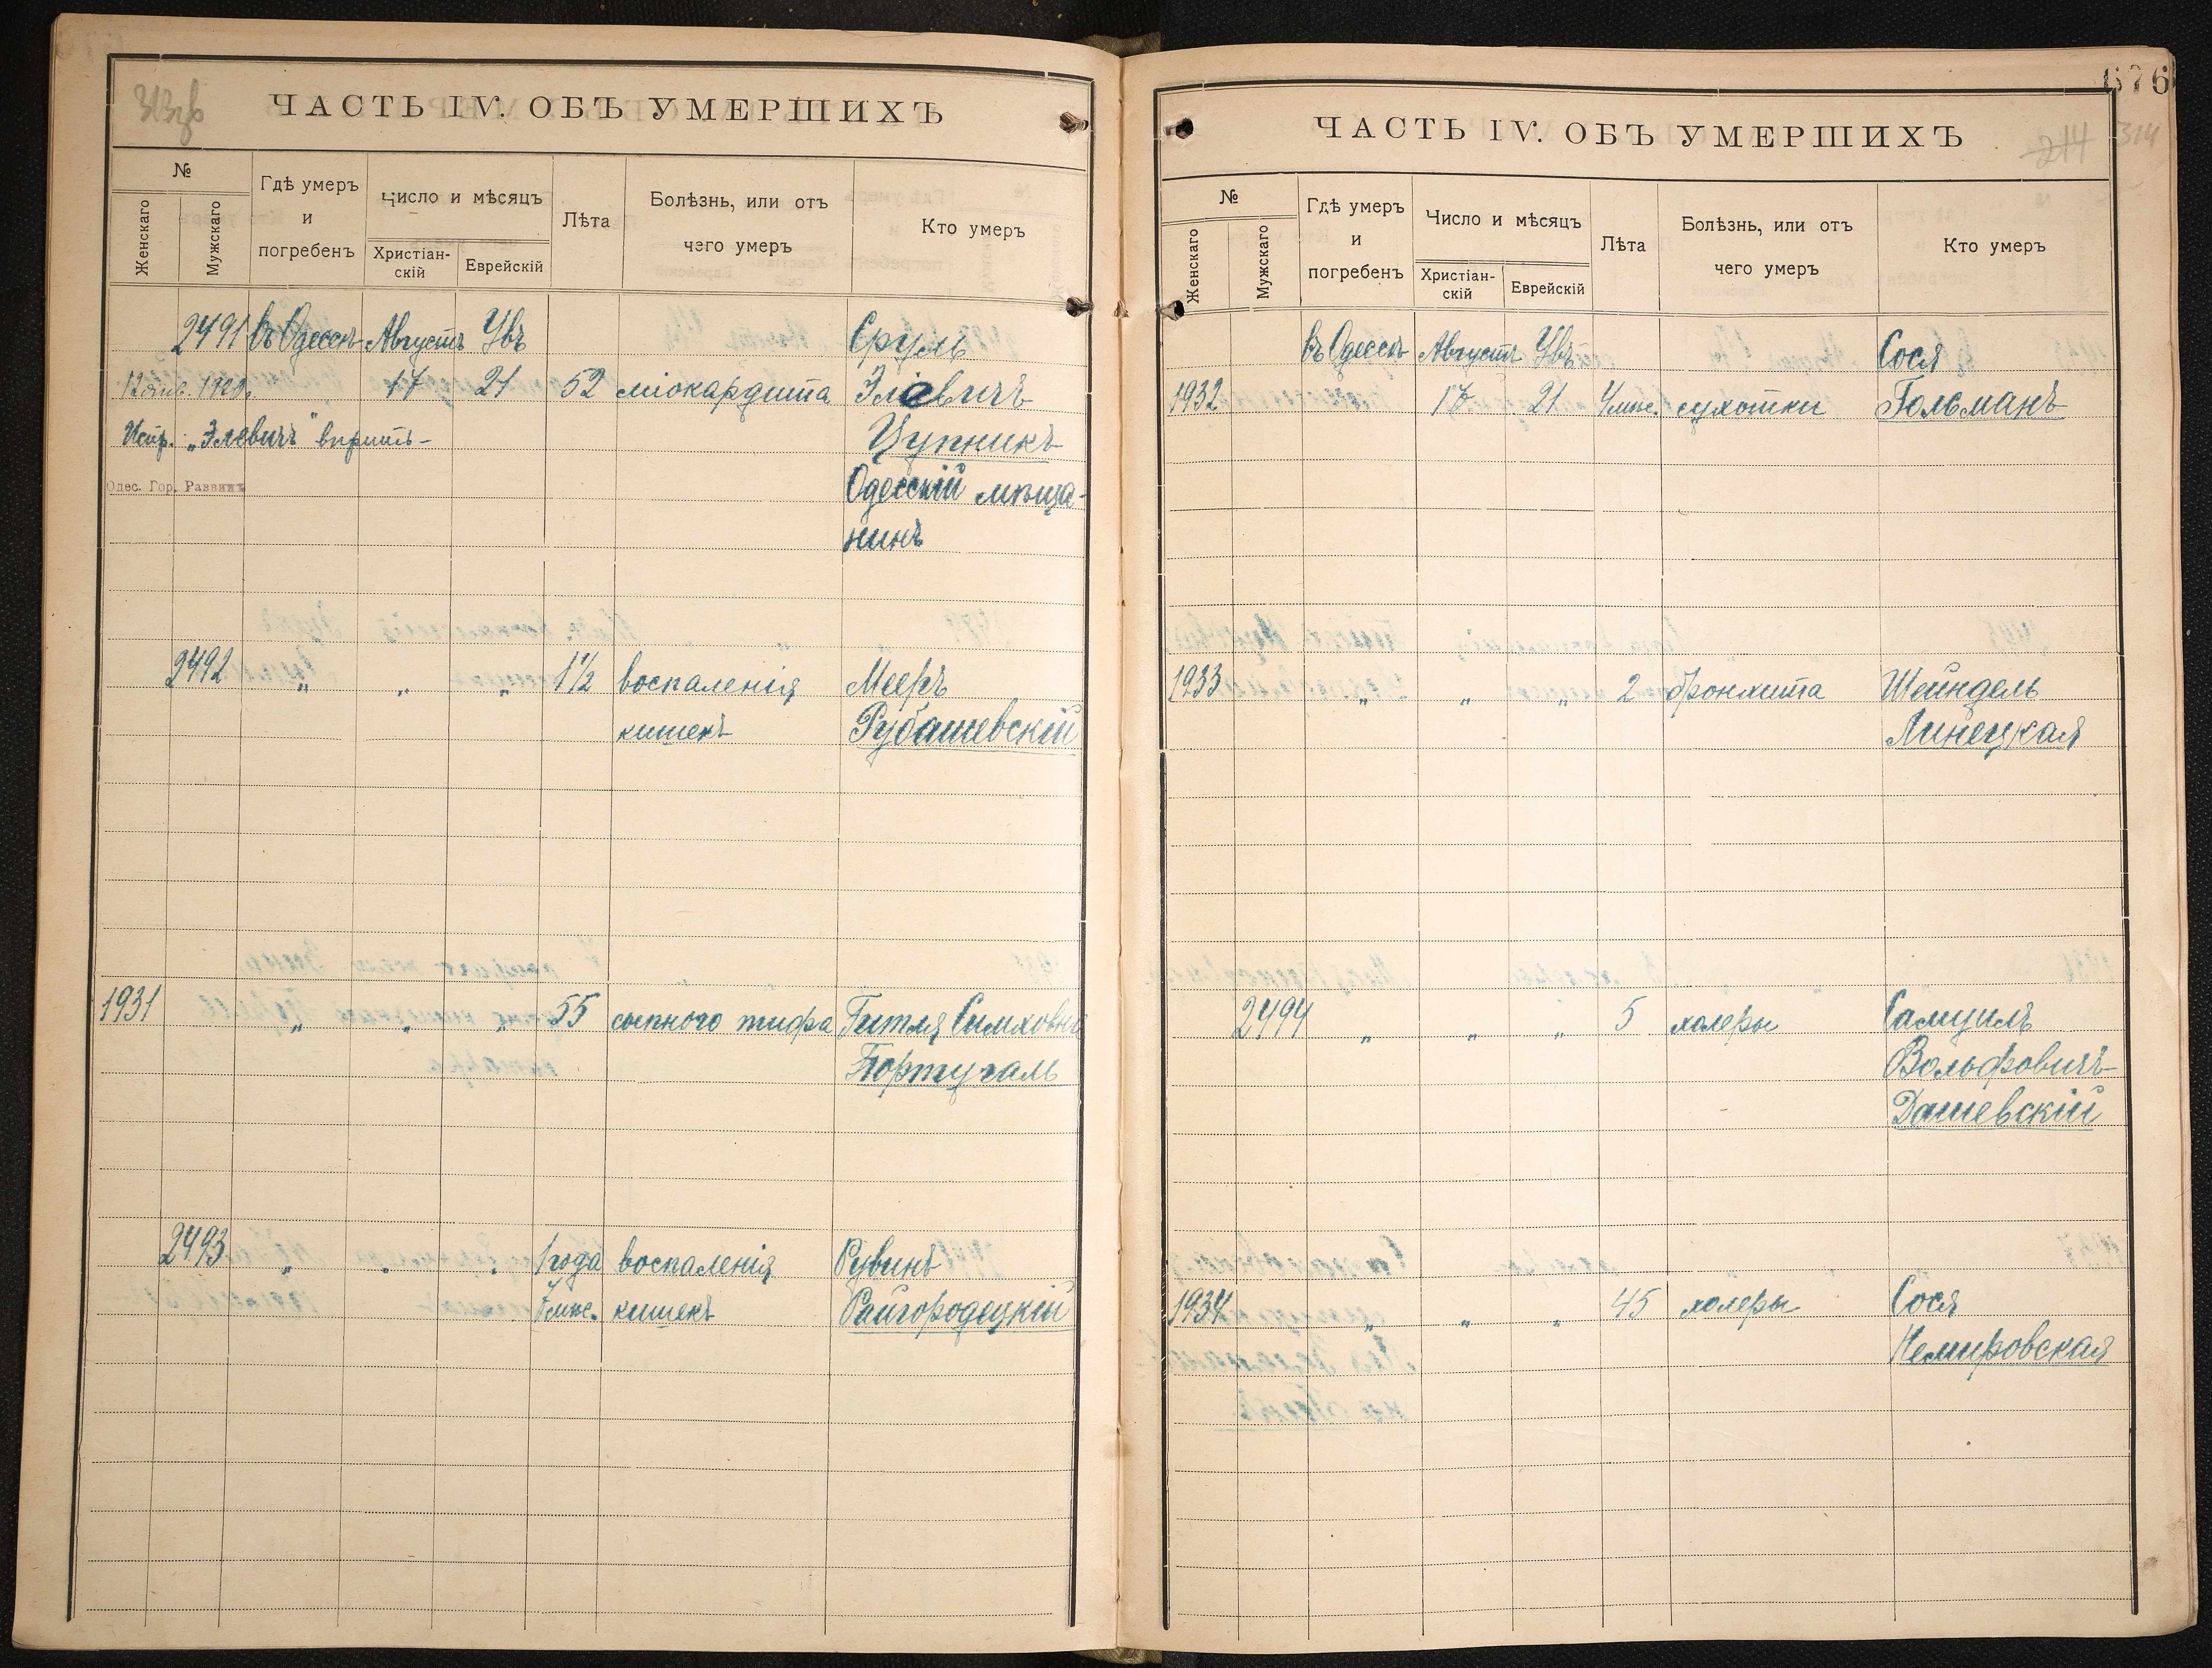 313об
ЧАСТЬ IV. ОБЪ УМЕРШИХЪ
№
Женскаго
Мужскаго
Гдѣ умеръ
и
погребенъ
Число и мѣсяцъ
Христіан-
скій
Еврейскій
Лѣта
Болѣзнь, или отъ
чего умеръ
Кто умеръ
2491 въ Одессѣ Августъ Увъ Сруль
12 янв. 1920г. 17 21 52 міокардита Эліевичъ
Испр. „Элевичъ" вѣрить Цупникъ
Одес. Гор. Раввинъ Одесскій мѣща-
нинъ
2492 „ „ „ 1½ воспаленія Мееръ
кишекъ Рубашевскій
1931 „ „ „ 55 сыпного тифа Гитля Симховна
Португаль
2493 „ „ „ 1 года воспаленія Рувинъ
7 мѣс. кишекъ Райгородецкій
676
ЧАСТЬ IV. ОБЪ УМЕРШИХЪ
214 314
№
Женскаго
Мужскаго
Гдѣ умеръ
и
погребенъ
Число и мѣсяцъ
Христіан-
скій
Еврейскій
Лѣта
Болѣзнь, или отъ
чего умеръ
Кто умеръ
въ Одессѣ Августъ Увъ Сося
1932 17 21 4 мѣс. сухотки Гольманъ
1933 „ „ „ 2 бронхита Шейндель
Линецкая
2494 „ „ „ 5 холеры Самуилъ
Вольфовичъ
Дашевскій
1934 „ „ „ 45 холеры Сося
Немировская